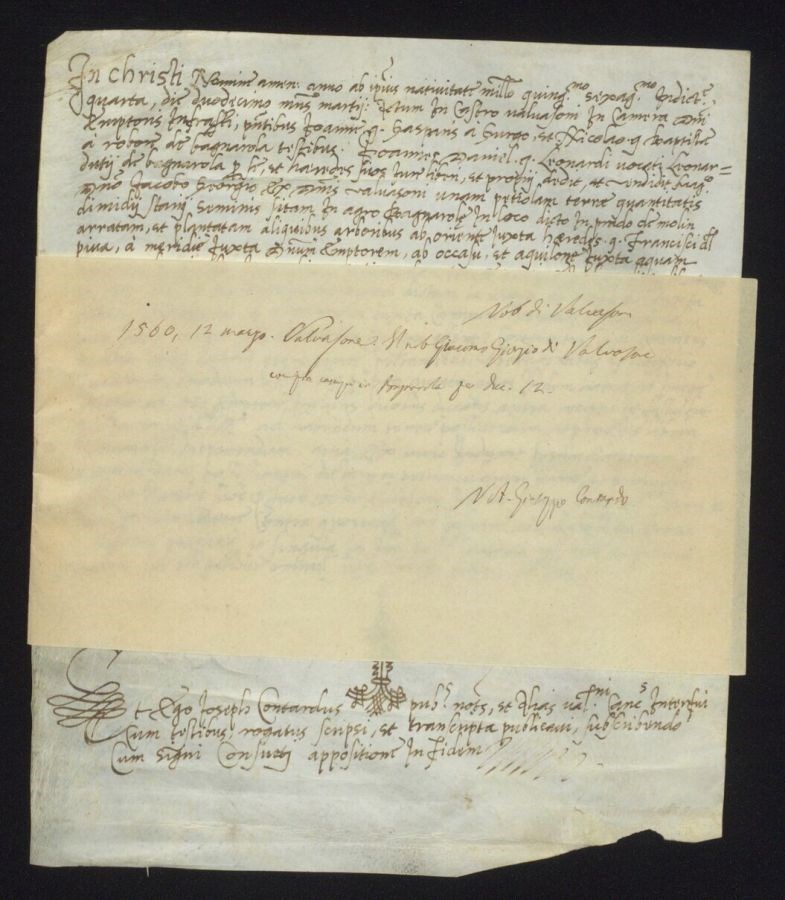 In Christi Nomine amen. anno ab ipsius nativitate mill.o quing.mo sexag.mo Indict.e
quarta, die duodecimo mens martij: Actum In Castro valvasoni In Camera Dni
Emptoris Infrasti, pntibus Joanne q. Gasparis a burgo, et Nicolao q. baptistæ
à robore de bagnarola testibus. Joannes Daniel q. Leonardi
de bagnarola p se, et hæredes suos Iure libero, et proprij dedit, et vendidit
Dno Jacobo Georgio Ex Dnis valvasoni unam petiolam terre quantitatis
dimidij starij seminis sitam In agro Bagnarolæ In loco dicto In
arratam, et plantatam aliquibus arboribus ab oriente Juxta hæredes q. Francisci
piva, à meridie Juxta Dnum Emptorem, ab occasu, et aquilone Juxta aquam
Nob di Valvason
1560, 12 marzo. Valvasone. Il nob Giacomo Giorgio di Valvasone
compra campo in per duc. 12.
Not. Giuseppe Contardo
Et Ego Joseph Contardus pub.s not.s, et Interfui
Cum testibus rogatus scripsi, et transumpta publicavi, subscribendo
Cum signi Consueti appositione In fidem